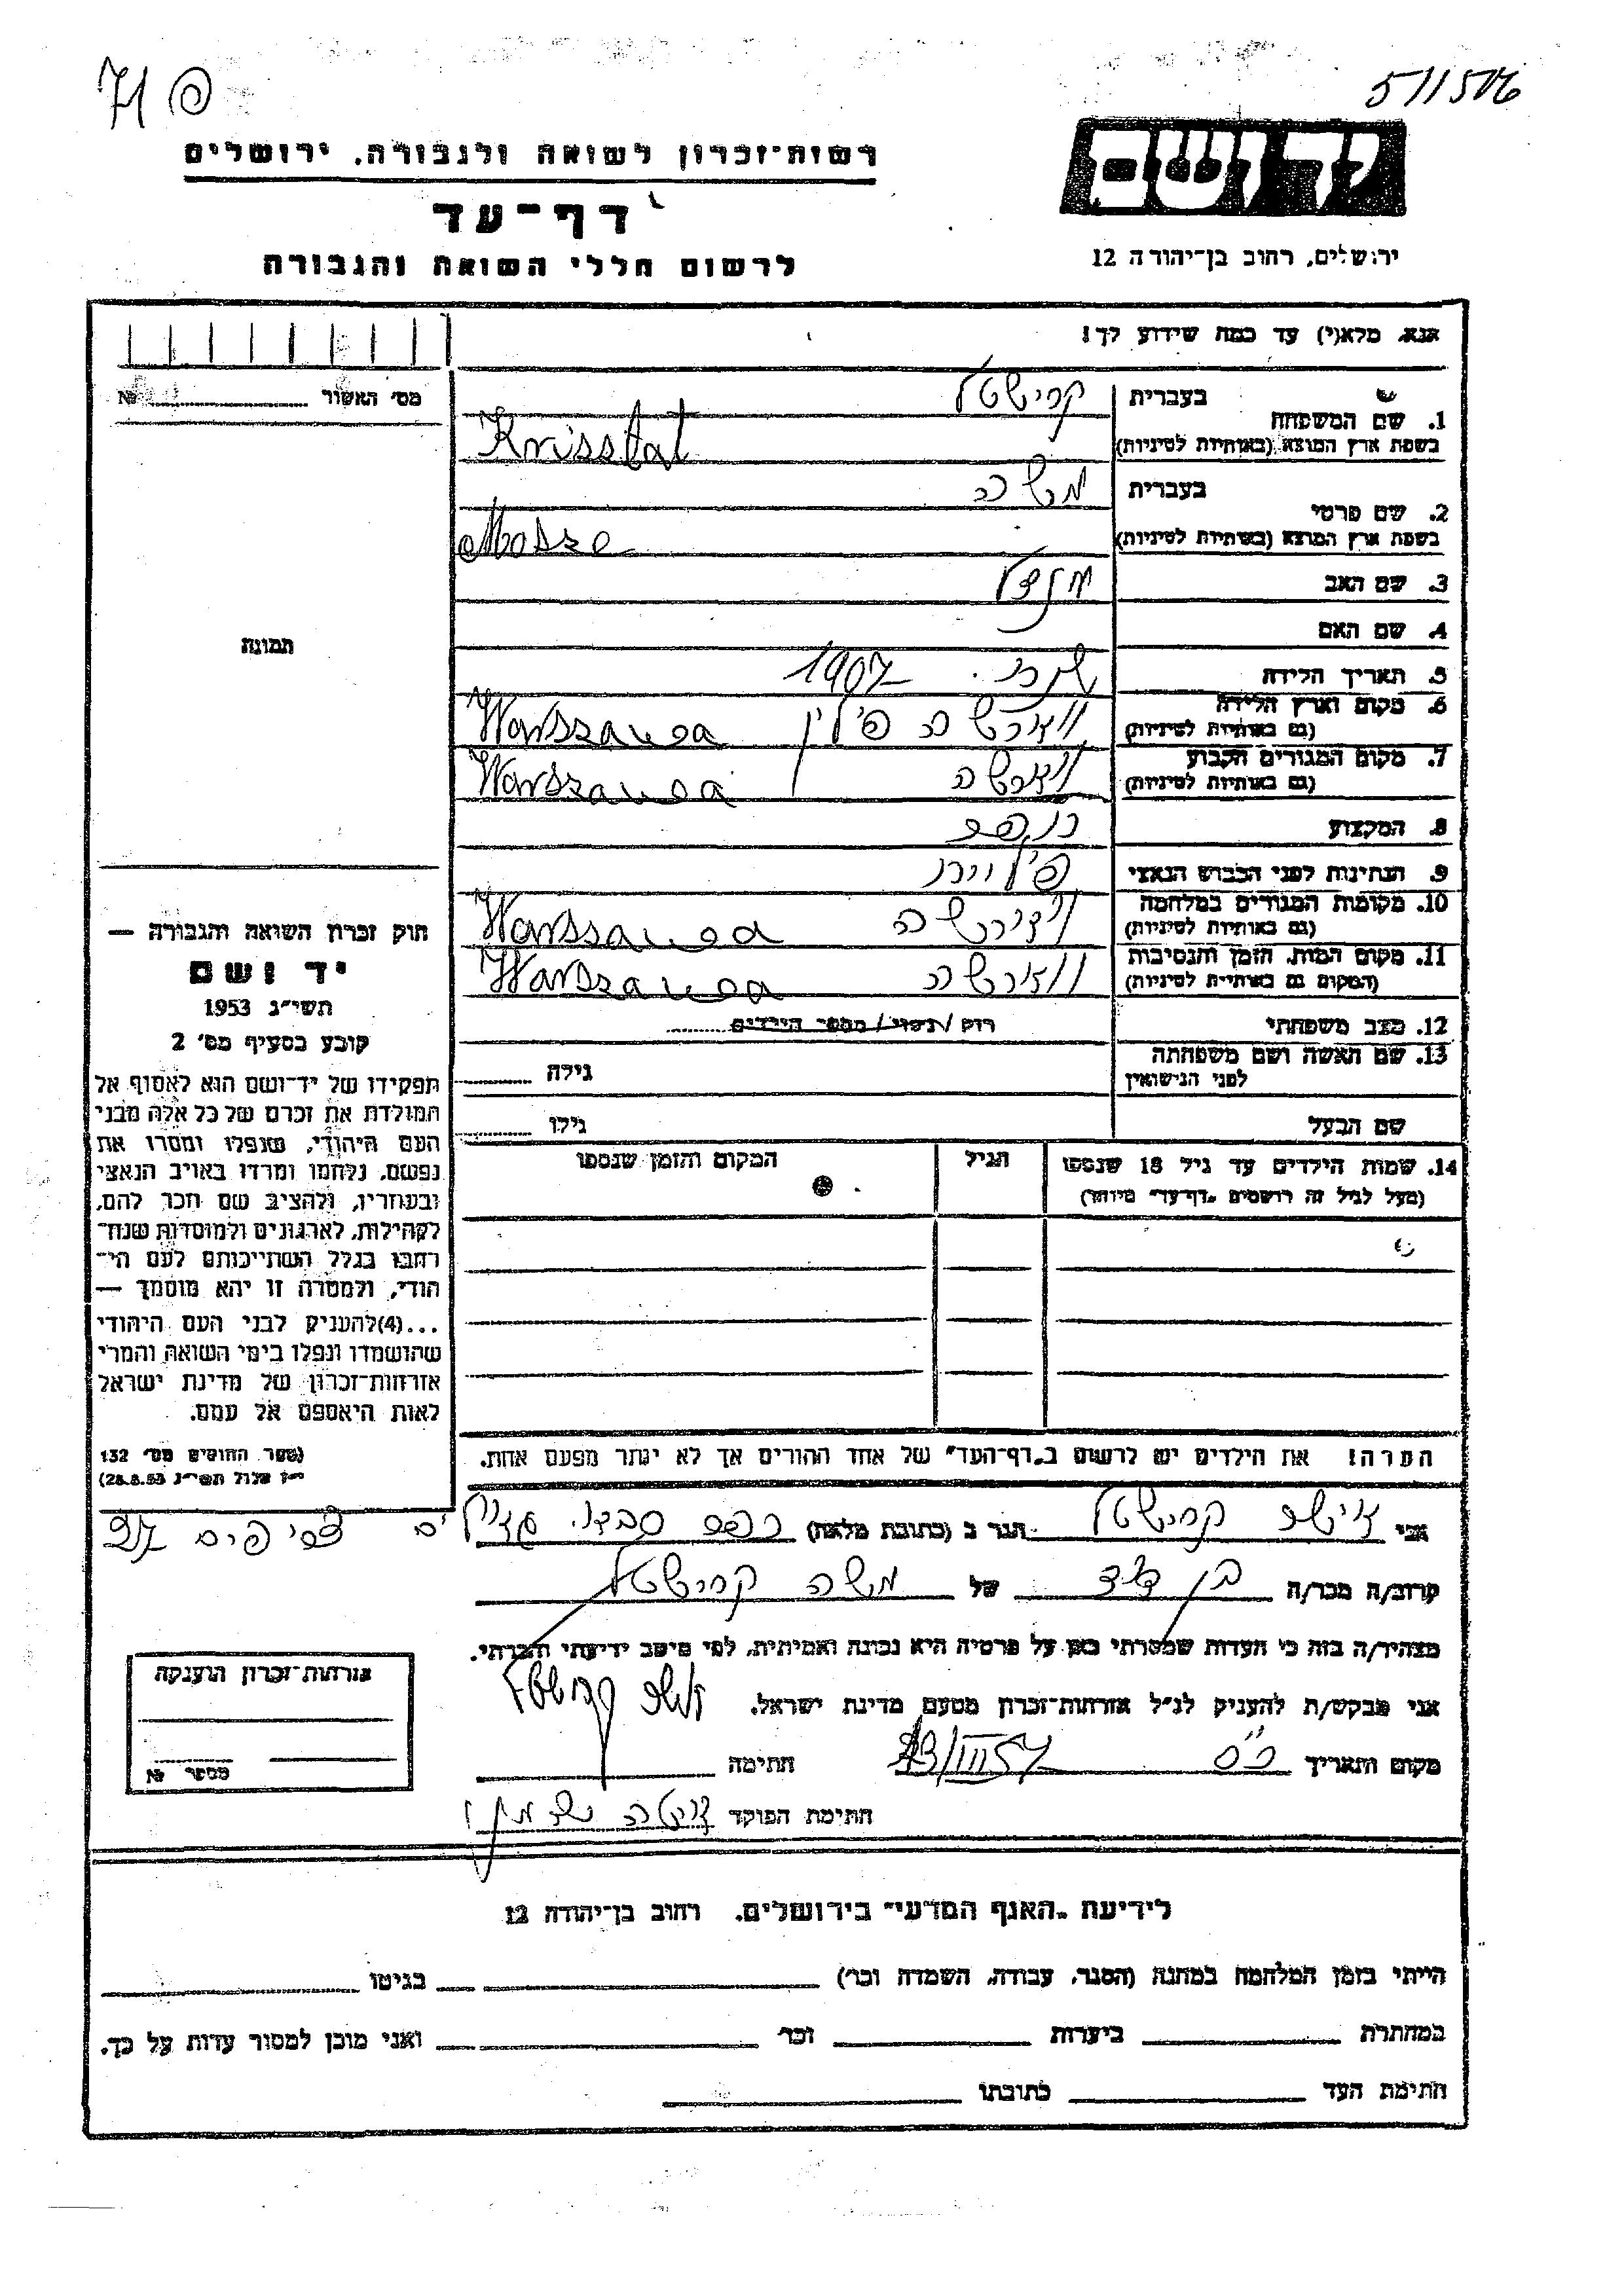 511506
רשות־זכרון לשואה ולגבורה, ירושלים
דף־עד
לרשום חללי השואה והגבורה
יד ושם
ירושלים, רחוב בן־יהודה 12
אנא, מלא(י) עד כמה שידוע לך!
מס׳ האשור № 
תמונה
1. שם המשפחה בעברית קרישטל
בשפת ארץ המוצא (באותיות לטיניות) Krisstal
2. שם פרטי בעברית משה
בשפת ארץ המוצא (באותיות לטיניות) Mosze
3. שם האב
4. שם האם
5. תאריך הלידה 1907
6. מקום וארץ הלידה ווארשה פולין Warszawa
(גם באותיות לטיניות)
7. מקום המגורים הקבוע ווארשה Warszawa
(גם באותיות לטיניות)
8. המקצוע
9. הנתינות לפני הכבוש הנאצי
10. מקומות המגורים במלחמה ווארשה Warssawa
(גם באותיות לטיניות)
11. מקום המות, הזמן והנסיבות ווארשה Warszawa
(המקום גם באותיות לטיניות)
12. מצב משפחתי רווק / נשוי / מספר הילדים
13. שם האשה ושם משפחתה גילה
לפני הנישואין
שם הבעל גילו
14. שמות הילדים עד גיל 18 שנספו הגיל המקום והזמן שנספו
(מעל לגיל זה רושמים „דף־עד״ מיוחד)
הערה! את הילדים יש לרשום ב„דף־העד״ של אחד ההורים אך לא יותר מפעם אחת.
חוק זכרון השואה והגבורה —
יד ושם
תשי״ג 1953
קובע בסעיף מס׳ 2
תפקידו של יד־ושם הוא לאסוף אל
המולדת את זכרם של כל אלה מבני
העם היהודי, שנפלו ומסרו את
נפשם, נלחמו ומרדו באויב הנאצי
ובעוזריו, ולהציב שם וזכר להם,
לקהילות, לארגונים ולמוסדות שנח־
רבו בגלל השתייכותם לעם הי־
הודי, ולמטרה זו יהא מוסמך —
...(4)להעניק לבני העם היהודי
שהושמדו ונפלו בימי השואה והמרי
אזרחות־זכרון של מדינת ישראל
לאות היאספם אל עמם.
(ספר החוקים מס׳ 132
י״ז אלול תשי״ג 28.8.53)
אני קרישטל הגר ב (כתובת מלאה) כפר סבא
קרוב/ה מכר/ה בן דוד של משה קרישטל
מצהיר/ה בזה כי העדות שמסרתי כאן על פרטיה היא נכונה ואמיתית, לפי מיטב ידיעתי והכרתי.
אני מבקש/ת להעניק לנ״ל אזרחות־זכרון מטעם מדינת ישראל. קרישטל
מקום ותאריך כ״ס 23/III 57 חתימה
חתימת הפוקד
אזרחות־זכרון הוענקה
מספר №
לידיעת „האגף המדעי״ בירושלים, רחוב בן־יהודה 12
הייתי בזמן המלחמה במחנה (הסגר, עבודה, השמדה וכו׳) בגיטו
במחתרת ביערות וכו׳ ואני מוכן למסור עדות על כך.
חתימת העד כתובתו